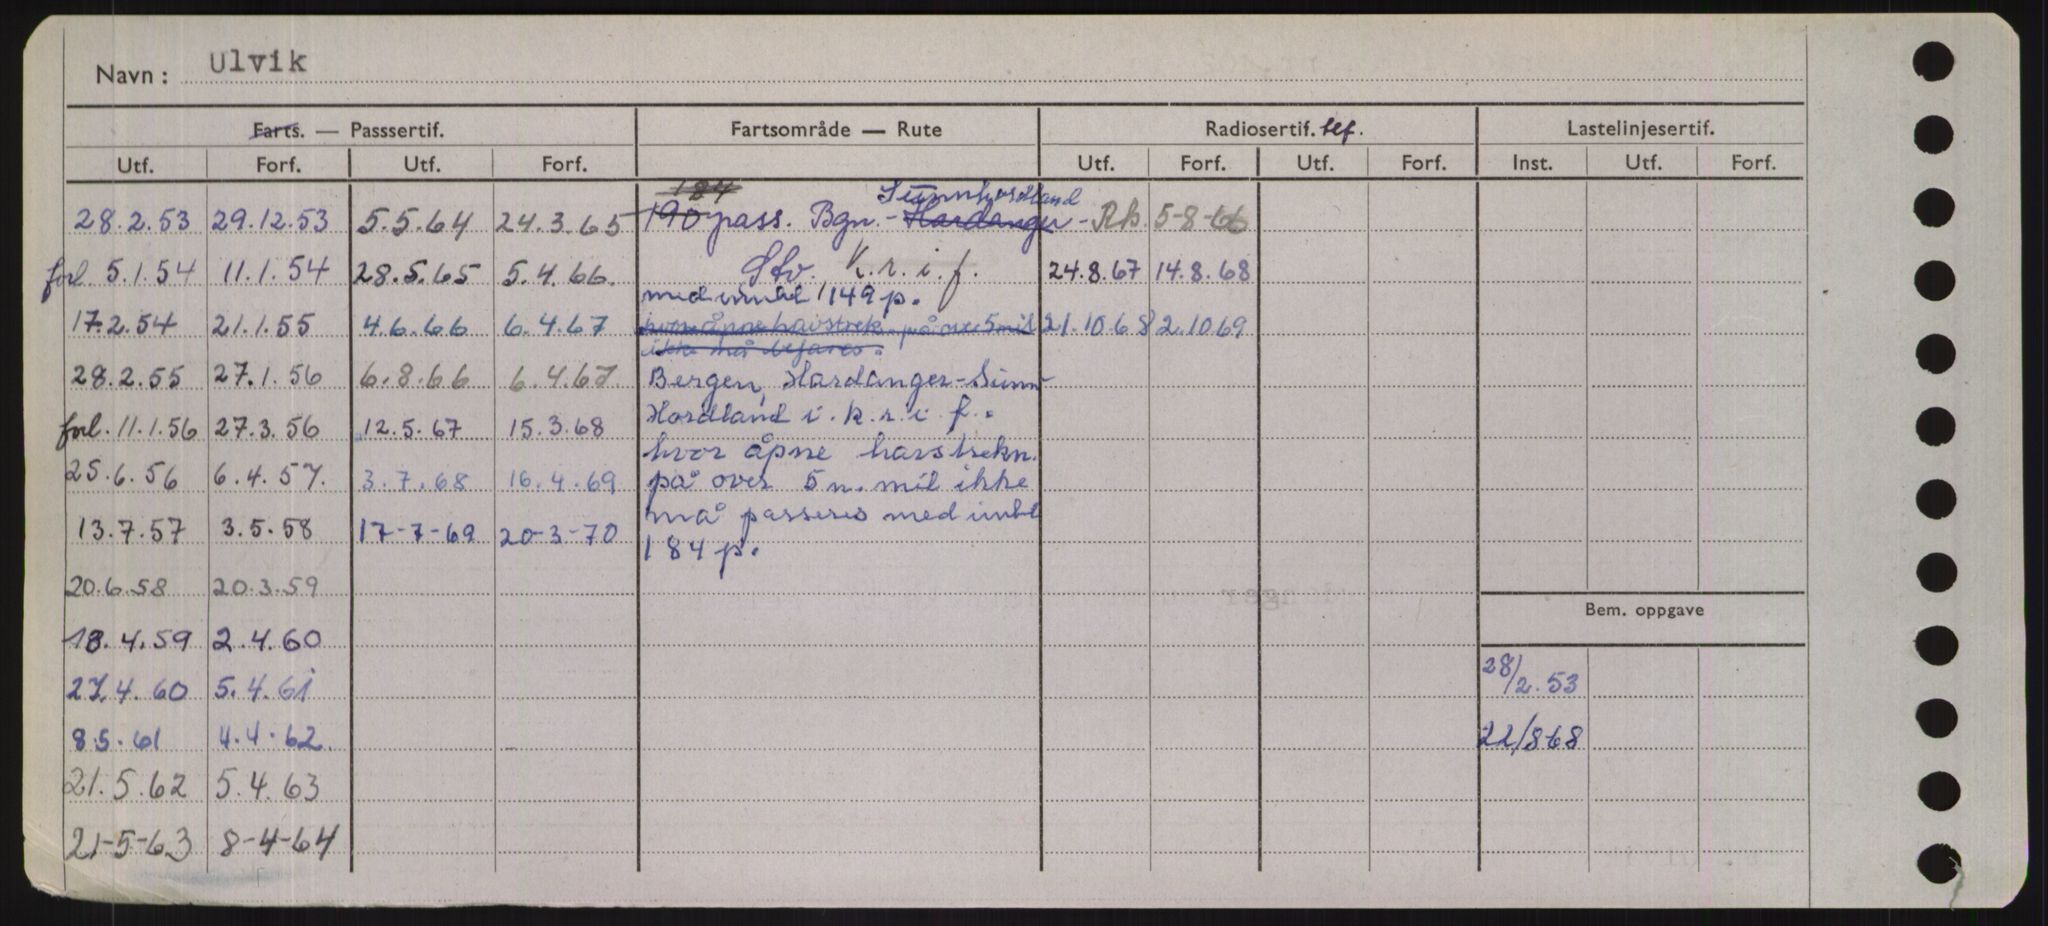 Navn : Ulvik
Farts. — Passsertif. Fartsområde — Rute Radiosertif. tlf. Lastelinjesertif.
Utf. Forf. Utf. Forf. Utf. Forf. Utf. Forf. Inst. Utf. Forf.
184 Sunnhordland
28.2.53 29.12.53 5.5.64 24.3.65 190 pass. Bgn. - Hardanger - 5-8-66
forl. 5.1.54 11.1.54 28.5.65 5.4.66. Stv. K.r.i.f. 24.8.67 14.8.68
med inntil 149 p.
17.2.54 21.1.55 4.6.66 6.4.67 hvor åpne havstrek. på over 5 mil 21.10.68 2.10.69
ikke må befares.
28.2.55 27.1.56 6.8.66 6.4.67. Bergen, Hardanger - Sunn-
forl. 11.1.56 27.3.56 12.5.67 15.3.68 Hordland i. k.r.i.f..
hvor åpne havstrekn.
25.6.56 6.4.57. 3.7.68 16.4.69 på over 5 n. mil ikke
må passeres med inntil
13.7.57 3.5.58 17-7-69 20-3-70 184 p.
20.6.58 20.3.59
Bem. oppgave
18.4.59 2.4.60
27.4.60 5.4.61 28/2.53
8.5.61 4.4.62. 22/8 68
21.5.62 5.4.63
21-5-63 8-4-64